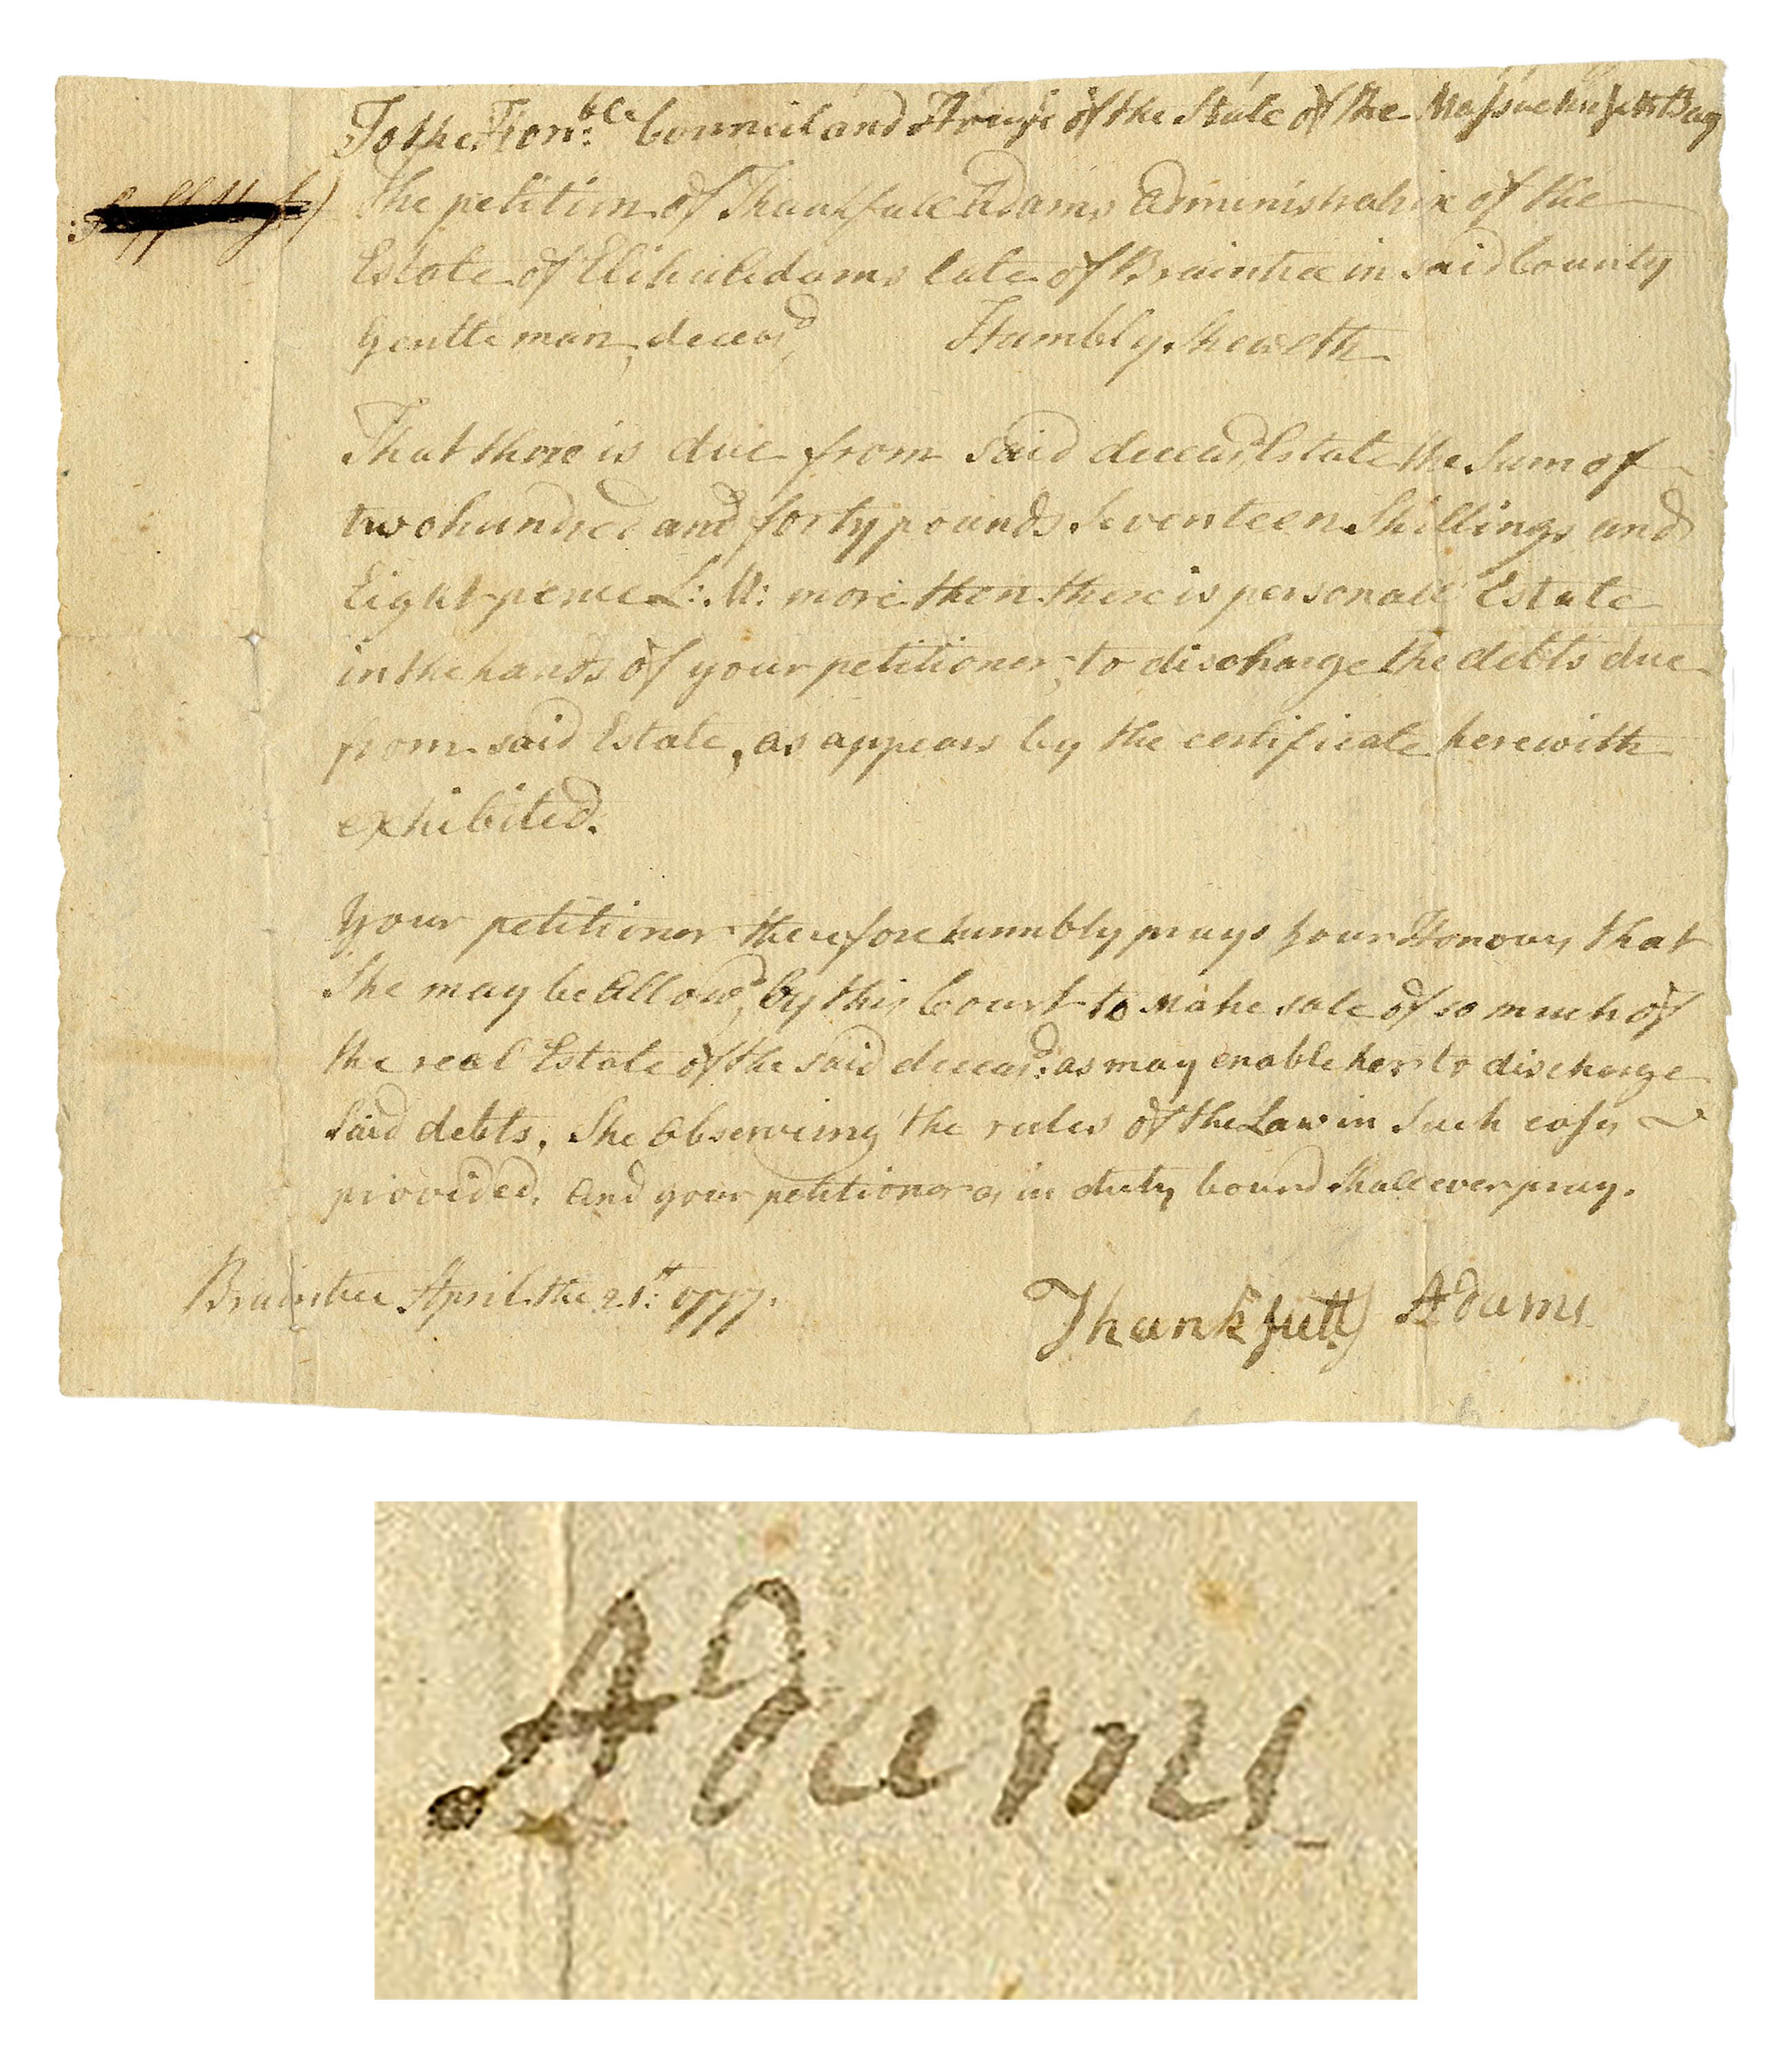 To the Hon:ble Council and House of the State of the Massachusetts Bay
Suffolk ss)
The petition of Thankfull Adams administratrix of the
Estate of Elihu Adams late of Braintree in said County
Gentleman, deceasd, Humbly Sheweth
That there is due from Said deceasd, Estate the Sum of
two hundred and forty pounds Seventeen Shillings and
Eight pence L: M: more then there is personall Estate
in the hands of your petitioner, to discharge the debts due
from said Estate, as appears by the certificate herewith
exhibited.
Your petitioner therefore humbly prays your Honours, that
She may be allowd, by this Court to Make sale of so much of
the real Estate of the said deceasd: as may enable her to discharge
Said debts, She observing the rules of the Law in Such cases
provided, and your petitioner as in duty bound Shall ever pray.
Braintree April the 21st: 1777.
Thankfull Adams
Adams